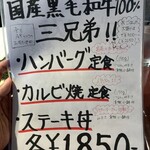 国産黒毛和牛100%
三兄弟!!
・ハンバーグ定食
・カルビ焼定食
・ステーキ付
各¥1850-